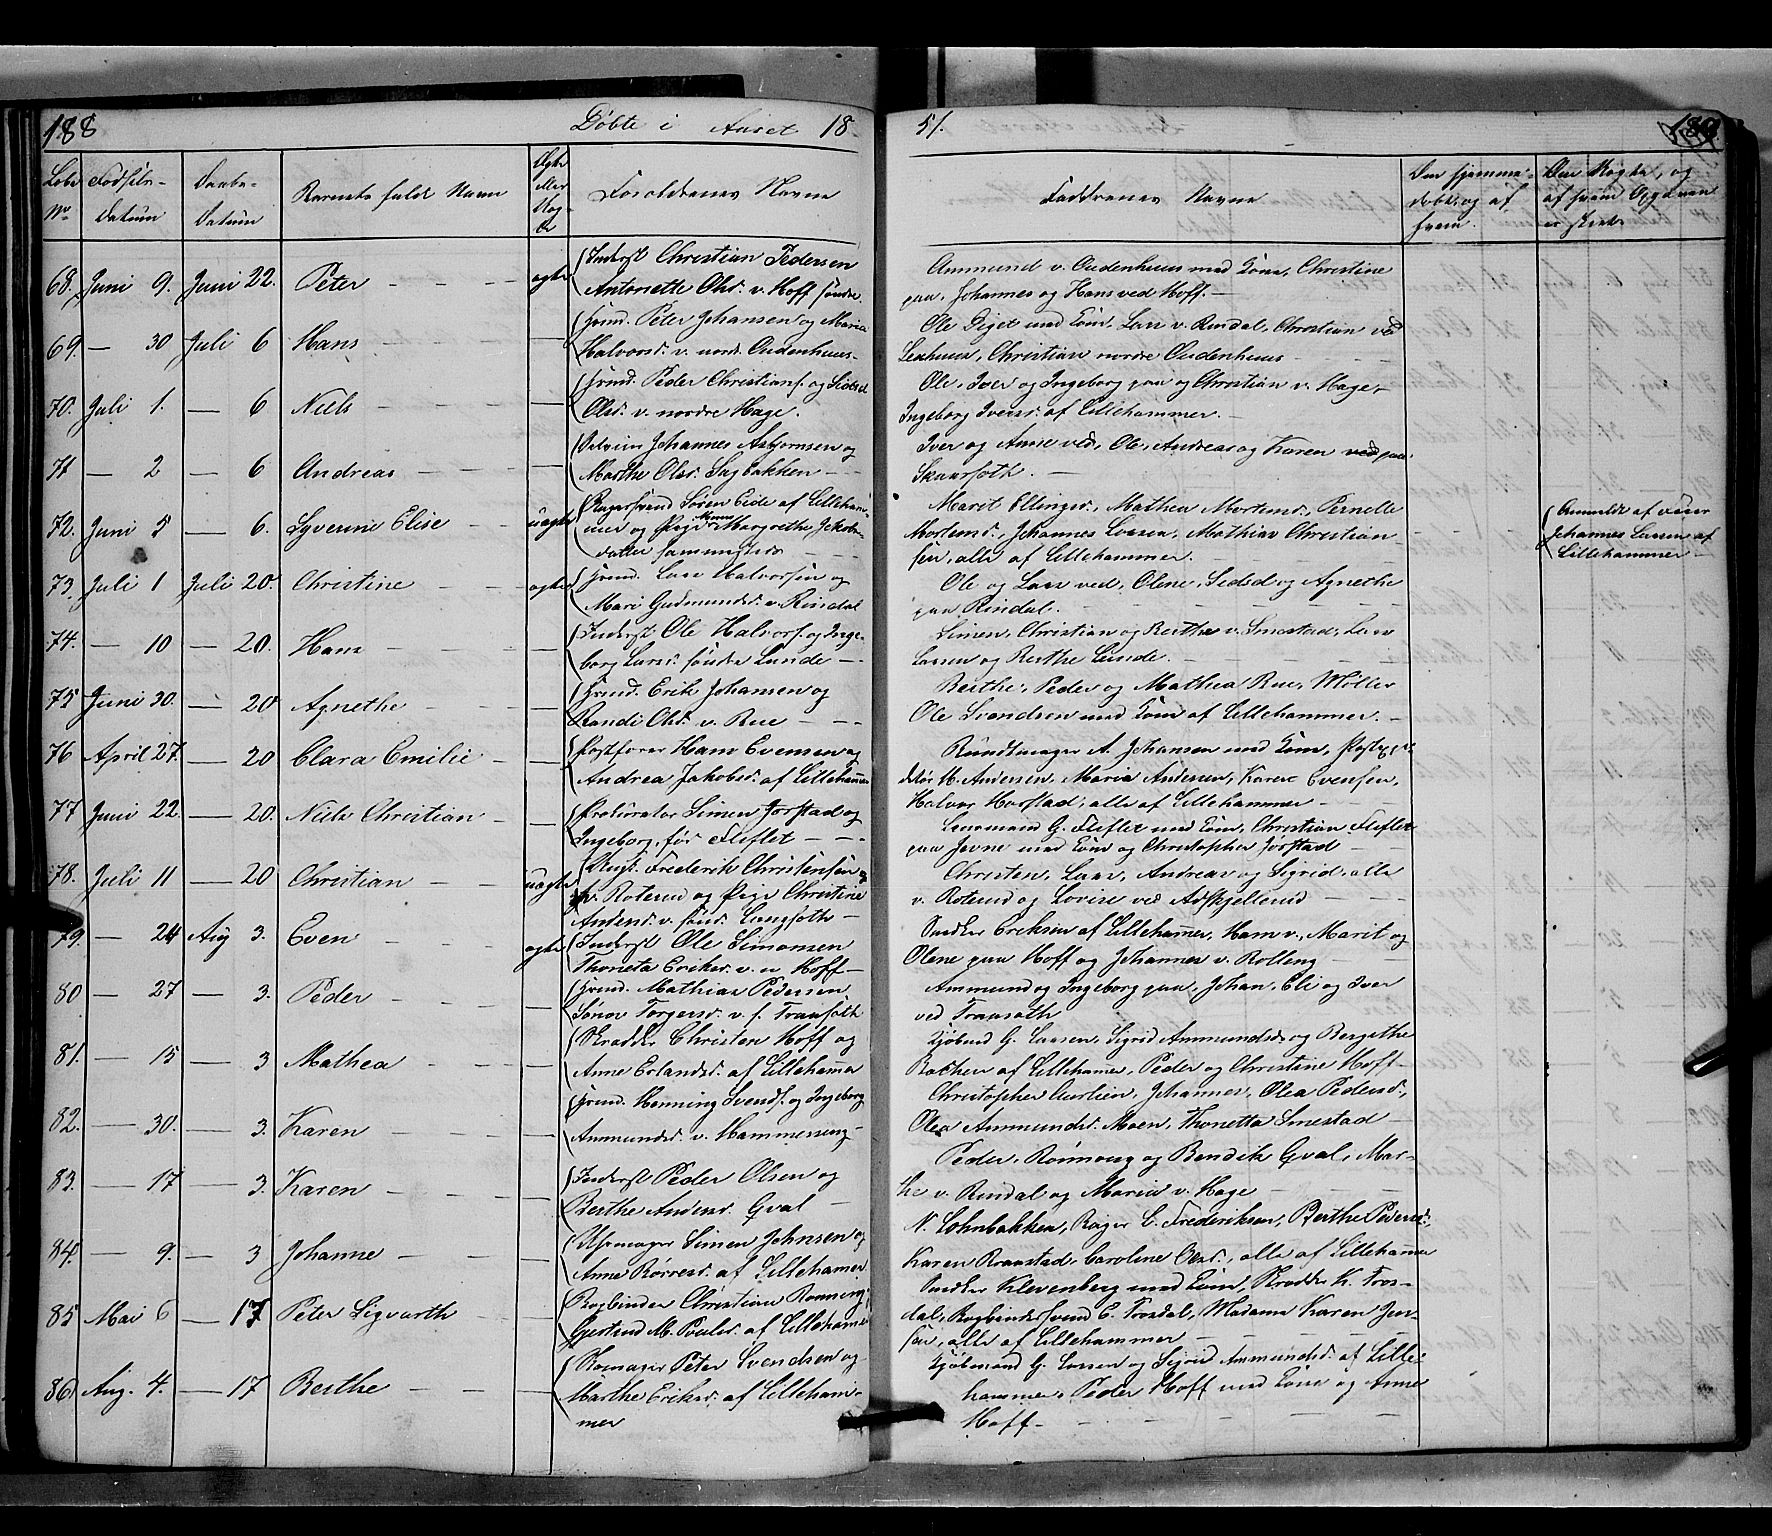 188
Døbte i Aaret 18
51.
189
Løbe No.
Fødsels-Datum
Daabs-Datum
Barnets fulde Navn
Ægte eller Uægte
Forældrenes Navne
Faddrenes Navne
Om hjemmedøbt, og af hvem.
Om Uægte, og af hvem Opgaven er skeet.
68. Juni 9. Juni 22. Peter - - - ægte
Inderst Christian Pedersen
Antonette Olsd. v. Hoff søndre
Ammund v. Oudenhuus med Kone, Christine
paa, Johannes og Hans ved Hoff. -
69. — 30 Juli 6 Hans - - - —
Peter Johansen og Maria
Halvorsd. v. nord. Oudenhuus-
Ole Diget med Kone, Lars v. Rindal, Christian ved
Christian nordre Oudenhuus -
70. Juli 1. — 6 Niels - - - —
Peder Christians. og
Olsd. v. nordre Hage.
Ole, Iver og Ingeborg paa og Christian v. Hage,
Ingeborg Iversd. af Lillehammer. -
71 — 2 — 6 Andreas - - - —
Johannes Asbjørnsen og
Marthe Olsd. Sagbakken - -
Iver og Anne ved, Ole, Andreas og Karen paa
Skaarseth. -
72. Juni 5 — 6. Syverine Elise - - uægte
Søren Eide af Lilleham-
mer og Pige Anne Margrethe Jakobs-
datter sammesteds - - -
Maret Ellingsd., Mathea Mortensd., Pernelle
Mortensd., Johannes Larsen, Mathias Christian
sen, alle af Lillehammer.
Anmeldt af
Johannes Larsen af
Lillehammer -
73. Juli 1 Juli 20. Christine - - ægte
Lars Halvorsen og
Mari Gudmundsd. v. Rindal
Ole og Lars ved, Olene, Sidsel og Agnethe
paa Rindal. - - - -
74. — 10 — 20. Hans - - - —
Inderst Ole Halvors. og Inge-
borg Larsd. søndre Lunde - -
Simen, Christian og Berthe v. Smestad, Lars
Larsen og Berthe Lunde. -
75 Juni 30. — 20 Agnethe - - - —
Erik Johansen og
Randi Olsd. v. Rue - - -
Berthe, Peder og Mathea Rue, Møller
Ole Svendsen med Kone af Lillehammer. -
76 April 27. — 20 Clara Emilie - —
Postfører Hans Evensen og
Andrea Jakobsd. af Lillehammer
Bundtmager A. Johansen med Kone,
M. Andersen, Maria Andersen, Karen Evensen,
Halvor Harstad, alle af Lillehammer -
77 Juni 22. — 20. Niels Christian - —
Prokurator Simen Jørstad og
Ingeborg, før Fliflet - - -
Lensmand G. Fliflet med Kone, Christian Fliflet
paa Jevne med Kone og Christopher Jørstad - -
78. Juli 11 — 20 Christian - - uægte
Ungk. Frederik Christensen
v. Roterud og Pige Christine
Andersd. v. sønd. Langseth -
Christen, Lars, Andreas og Sigrid, alle
v. Roterud og Lovise ved Adskjellerud - -
79. — 24 Aug 3. Even - - - ægte
Inderst Ole Simonsen
Thoneta Eriksd. v. n Hoff -
Snedker Eriksen af Lillehammer, Hans v., Marit og
Olene paa Hoff og Johannes v. Rolling
80 — 27 — 3. Peder - - - —
Mathias Pedersen
Torgersd. v. s.
Ammund og Ingeborg paa, Johan, Eli og Iver
ved
81. — 15 — 3 Mathea - - - —
Skradder Christen Hoff og
Anne Erlandsd. af Lillehammer
Kjøbmd G. Larsen, Sigrid Ammundsd. og Bergethe
Bakken af Lillehammer, Peder og Christine Hoff -
82. — 30. — 3. Karen - - - —
Henning Svends. og Ingeborg
Ammundsd. v. Hammerseng -
Christopher Aurlien, Johannes, Olea Pedersd.,
Olea Ammundsd. Moen, Thonetta Smestad -
83. — 17 — 3. Karen - - - —
Inderst Peder Olsen og
Berthe Andersd. Qval -
Peder, Rønnaug og Bendik Qval, Mar-
the v. Rindal og Maria v. Hage - -
84. — 9. — 3 Johanne - - - —
Simen Johnsen og
Anne Børresd. af Lillehammer
N. Lohnbakken, Bager C. Frederiksen, Berthe Pedersd.,
Karen Braastad, Caroline Olsd., alle af Lillehammer
85 Mai 6 — 17 Peter Sigvarth - - —
Bogbinder Christian Rønning
Gjertrud M. Poulsd. af Lillehammer
Snedker Klevenberg med Kone, Skradder K. Fros-
dal, Bogbindersvend C. Frosdal, Madame Karen Jen-
sen, alle af Lillehammer - - - -
86) Aug. 4. — 17 Berthe - - - —
Skomager Peter Svendsen og
Marthe Eriksd. af Lilleham-
mer
Kjøbmand G. Larsen og Sigrid Ammundsd. af Lille-
hammer, Peder Hoff med Kone og Anne
Hoff -